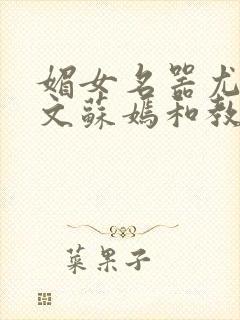 媚女名器尤
文蘇媽和教
菜果子